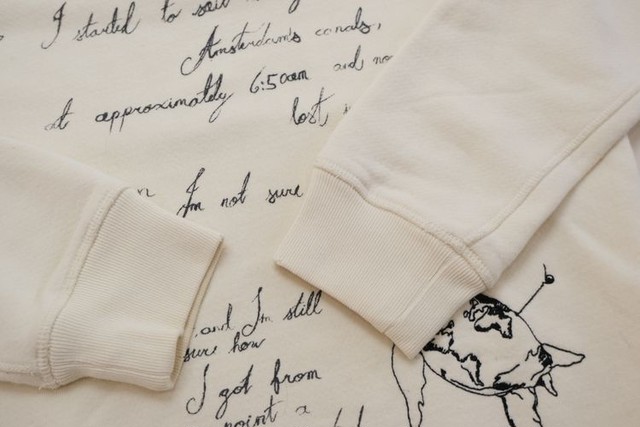 I started to sail
Amsterdam's canals,
at approximately 6:50am and no
lost
I'm not sure
and I'm still
sure how
I got from
point x